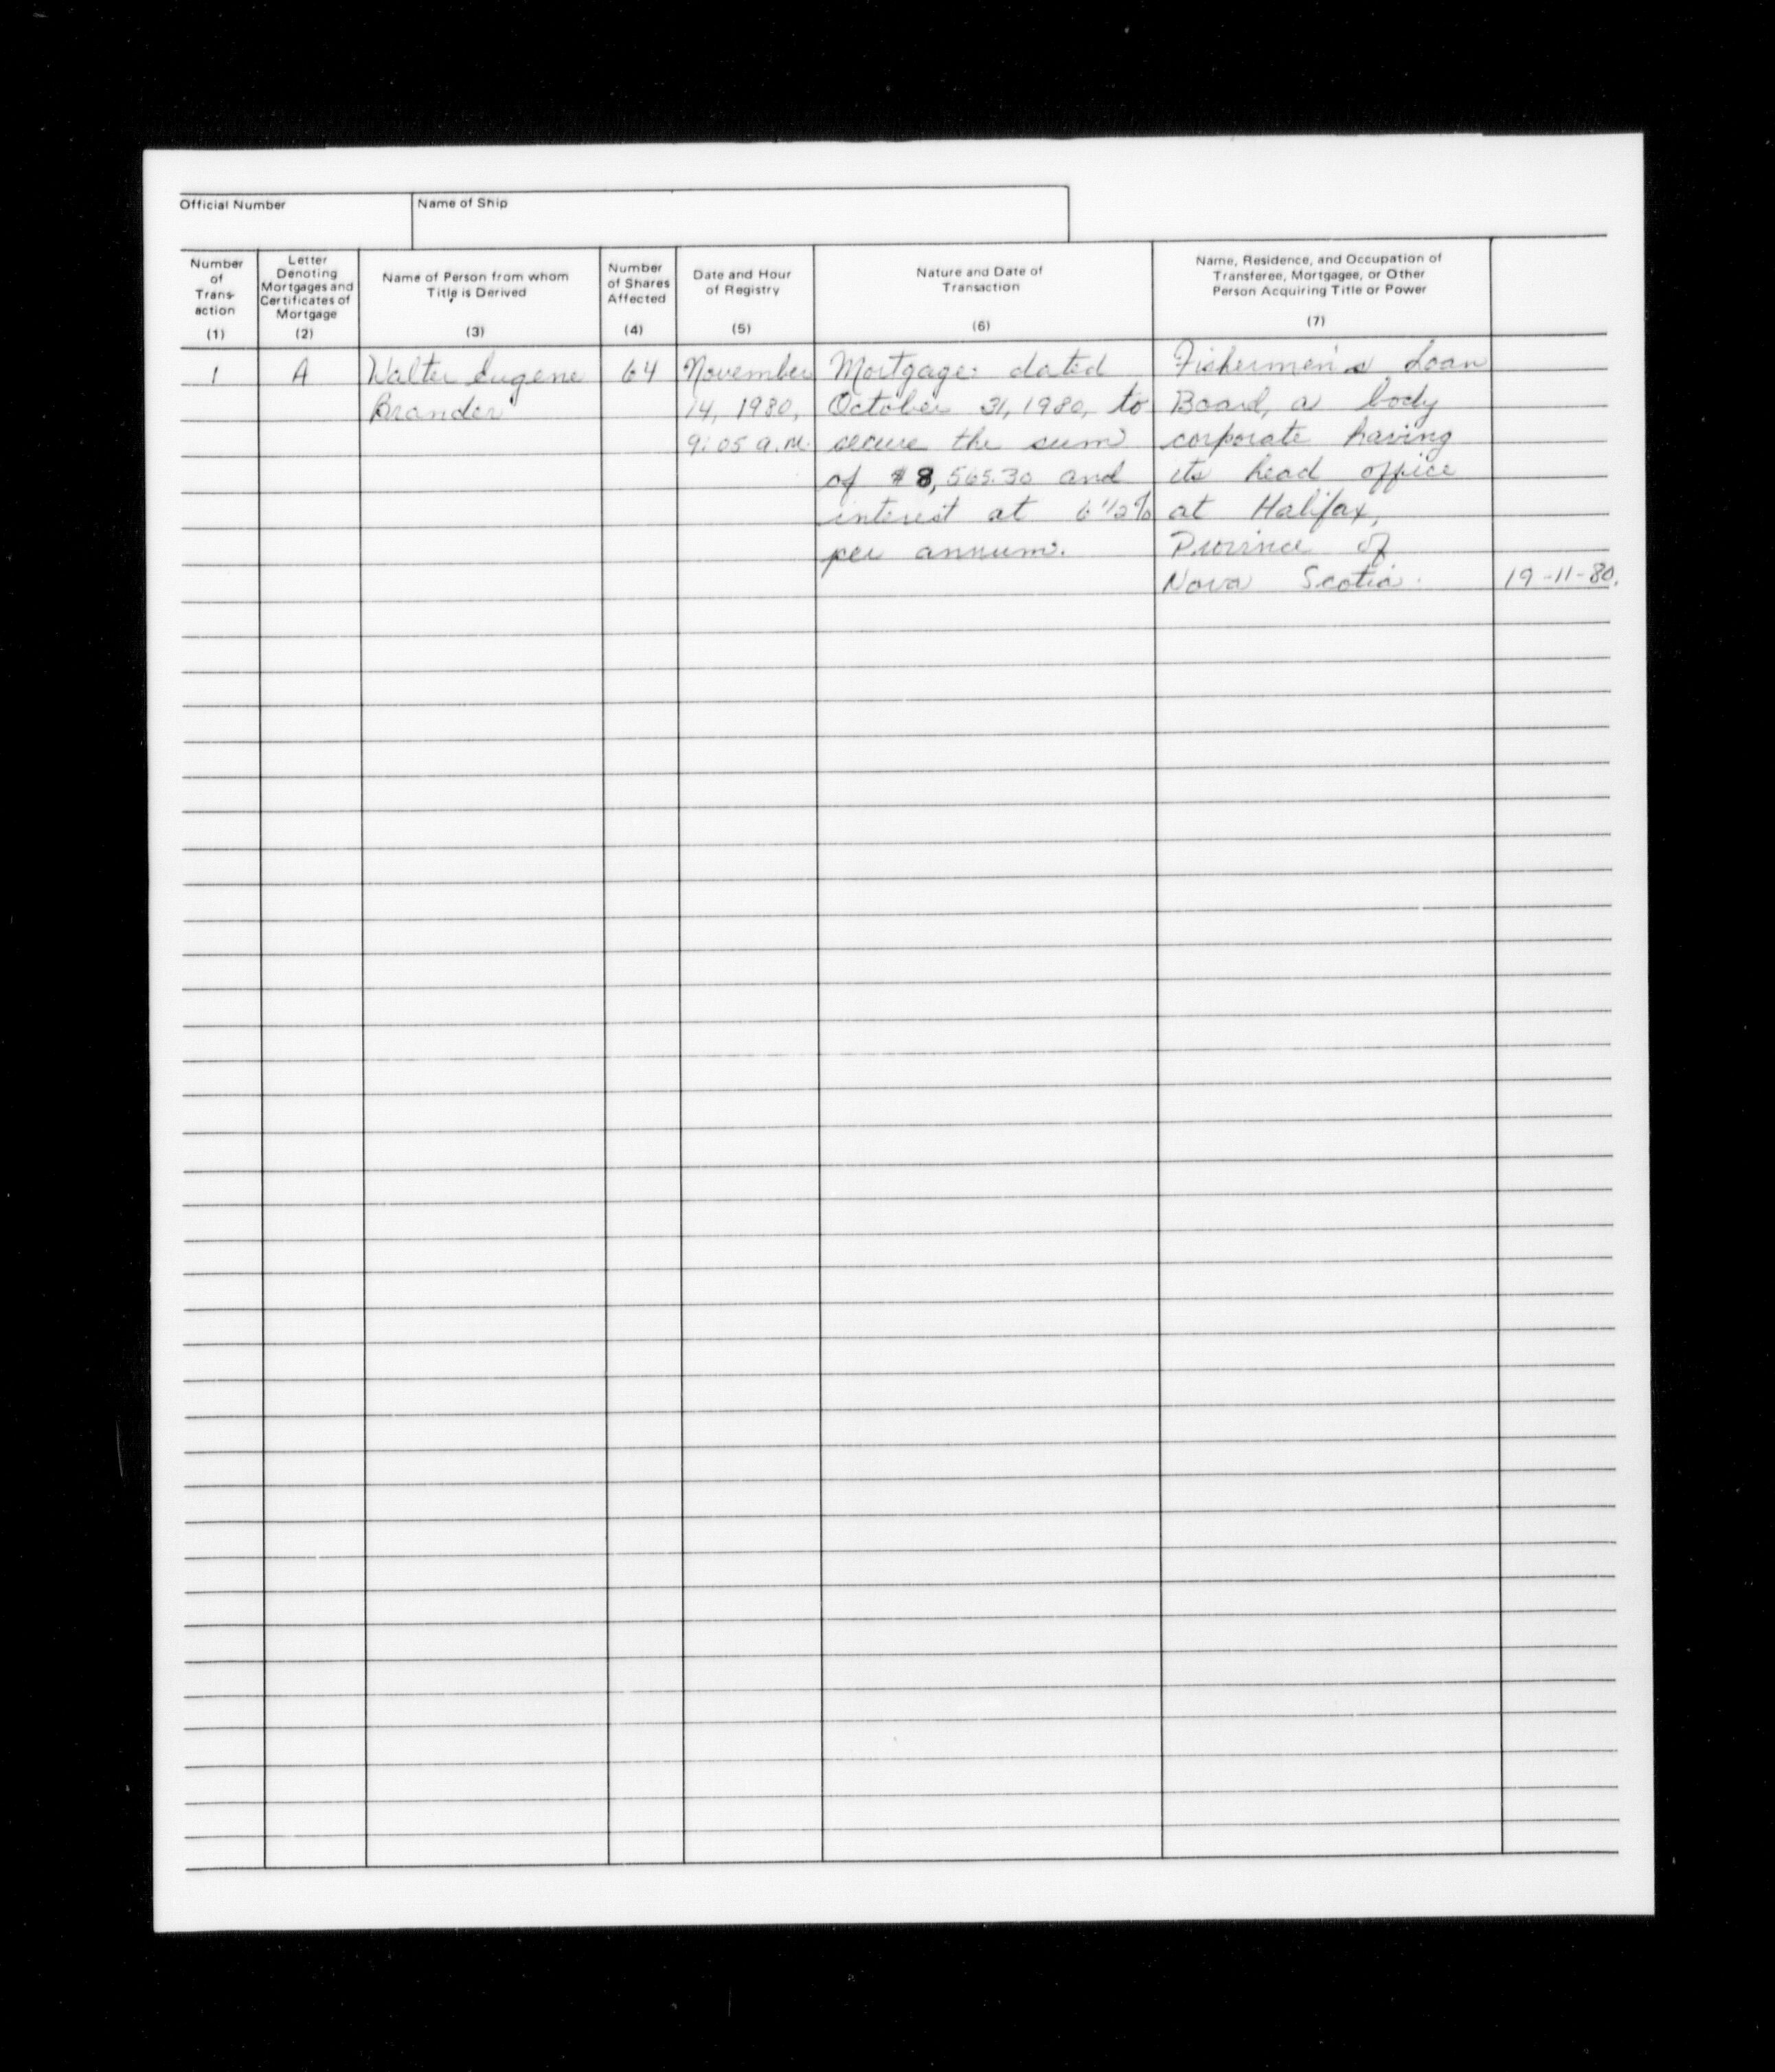 Official Number
Name of Ship
Number
of
Trans-
action
(1)
Letter
Denoting
Mortgages and
Certificates of
Mortgage
(2)
Name of Person from whom
Title is Derived
(3)
Number
of Shares
Affected
(4)
Date and Hour
of Registry
(5)
Nature and Date of
Transaction
(6)
Name, Residence, and Occupation of
Transferee, Mortgagee, or Other
Person Acquiring Title or Power
(7)
1
A
Walter Eugene
Brander
64
November
14, 1980,
9:05 a.m.
Mortgage dated
October 31, 1980, to
secure the sum
of $8,565.30 and
interest at 6 1/2%
per annum.
Fishermen's Loan
Board, a body
corporate having
its head office
at Halifax,
Province of
Nova Scotia.
19-11-80.